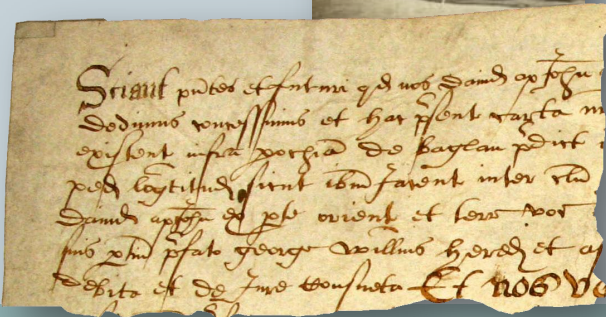 Sciant p'ntes et futuri qd nos Dauid ap John
dedimus concessimus et hac p'sent carta m
existent infra pochiã de Baglan p'dict
ped longitud sicut ibm Jacent inter
Dauid ap John ex pte orient et terr voc
p'fato George Willms hered et a
debita et de Jure consueta Et nos v